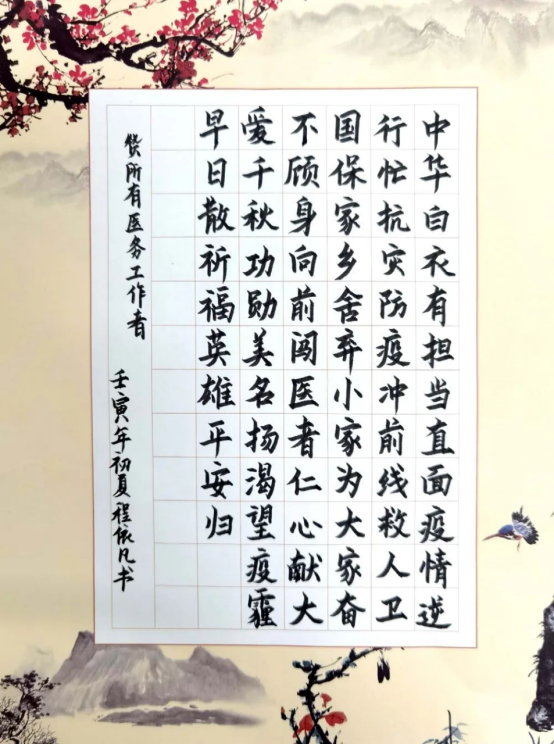 中华白衣有担当直面疫情逆
行忙抗灾防疫冲前线救人卫
国保家乡舍弃小家为大家奋
不顾身向前闯医者仁心献大
爱千秋功勋美名扬渴望疫霾
早日散祈福英雄平安归
所有医务工作者
壬寅年初夏程依凡书